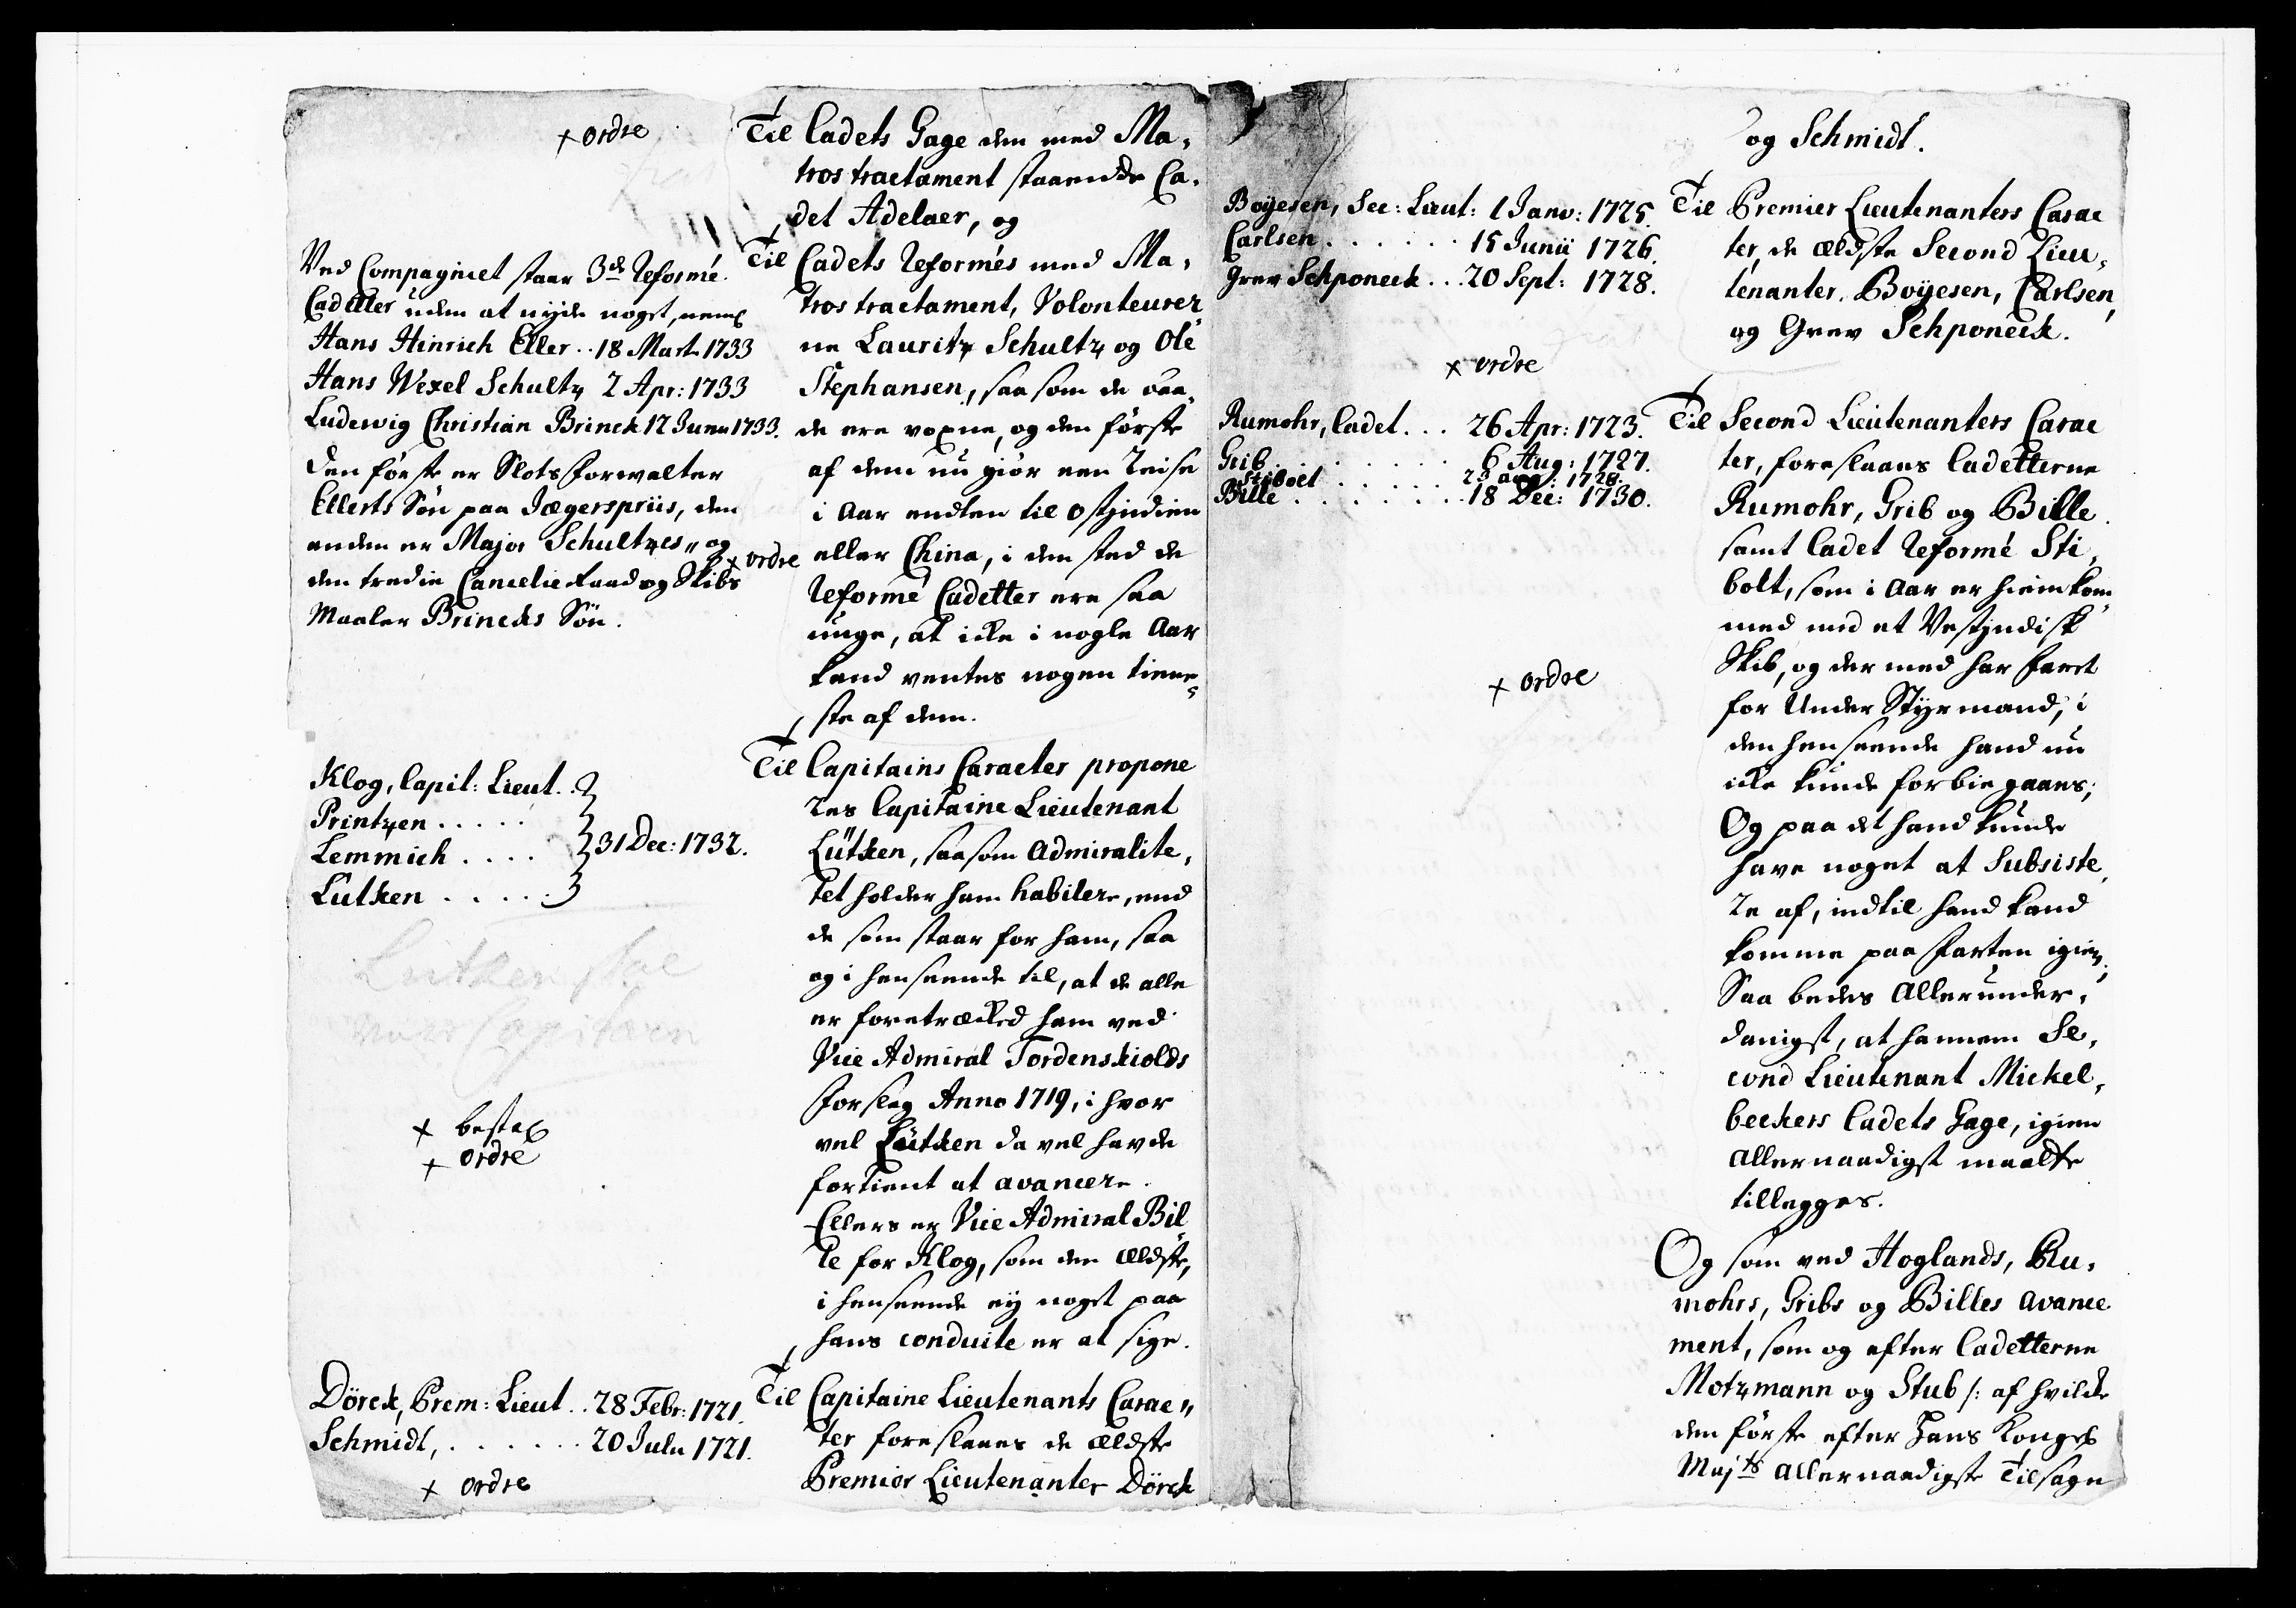 + ordre
Ved Compagniet staar 3de Reformé
Cadetter uden at nyde noget, neml
Hans Hinrich Eller .. 18 Mart. 1733
Hans Wexel Schultz 2 Apr: 1733
Ludewig Christian Brinck 12 Junii 1733.
den første er Slots forwalter
Ellerts Søn paa Jægerspriis, den
anden er Major Schultzes,, og
den tredie Cancelie Raad og Skibs
Maaler Brincks Søn.
+ ordre
Klog, Capit: Lieut. .
Printzen . . . . .
Lemmich . . . .
Lütken . . . . .
31 Dec: 1732.
Lütken skal
være Capitain
+ bestal
+ ordre
Dörck, Prem: Lieut .. 28 Febr: 1721.
Schmidt, . . . . . . 20 Julii 1721.
+ ordre
Til Cadets Gage den med Ma,
tros tractament staaende Ca,
det Adelaer, og
Til Cadets Reformés med Ma,
tros tractament, Volonteurer
ne Lauritz Schultz og Ole
Stephansen, saa som de baa,
de ere voxne, og den første
af dem nu giør een Reise
i Aar endten til Ostindien
eller China, i den sted de
Reformé Cadetter ere saa
unge, at icke i nogle Aar
kand ventes nogen tiene,
ste af dem.
Til Capitains Caracter propone
res Capitaine Lieutenant
Lütken, saasom Admiralite,
tet holder ham habilere, end
de som staar for ham, saa
og i henseende til, at de alle
er foretræcked ham ved
Vice Admiral Tordenskiolds
forslag Anno 1719, i hvor
vel Lütken da vel havde
fortient at avancere.
Ellers er Vice Admiral Bil,
le for Klog, som den ældste,
i henseende ey noget paa
hans conduite er at sige.
Til Capitaine Lieutenants Carac,,
ter foreslaaes de ældste
Premier Lieutenanter Dörck
og Schmidt.
Boÿesen, Sec: Lieut: 1 Janv: 1725.
Carlsen . . . . . . 15 Junii 1726.
Grev Schponeck . . . 20 Sept: 1728.
+ ordre
Rumohr, Cadet . . . 26 Apr: 1723.
Grib . . . . . . . . 6 Aug: 1727.
Stibolt . . . . . . 23 aug: 1728.
Bille . . . . . . . . 18 Dec: 1730.
+ ordre
Til Premier Lieutenanters Carac
ter, de ældste Second Lieu,
tenanter, Boÿesen, Carlsen,
og Grev Schponeck.
Til Second Lieutenanters Carac
ter, foreslaaes Cadetterne
Rumohr, Grib og Bille
samt Cadet Reformé Sti,
bolt, som i Aar er hiemkom
med med et Vestindisk
Skib, og der med har faret
for Under Styrmand, i
den henseende hand nu
icke kunde forbiegaaes;
Og paa det hand kunde
have noget at Subsiste,
re af, indtil hand kand
komme paa farten igien,
Saa bedes Allerunder,
danigst, at hannem Se,
cond Lieutenant Mickel,
beckers Cadets Gage, igien
Allernaadigst maatte
tillegges.
Og som ved Hoglands, Ru,
mohrs, Gribs og Billes avance
ment, som og efter Cadetterne
Motzmann og Stub /: af hvilcke
den første efter Hans Kongel
Majts allernaadigste Tilsagn